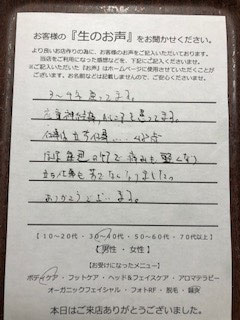 お客様の『生のお声』をお聞かせください。
より良いお店作りの為に、お客様のお声をご記入いただいております。
当店をご利用になった感想などを、下記にご記入くださいませ。
※ご記入いただいた『お声』はホームページに使用させていただくことが
ございます。お名前などは記載しませんので、ご安心くださいませ。
通ってます。
坐骨神経痛
仕事
立ち仕事も苦でなくなりました
ありがとうございます。
【 10～20代 ・ 30～40代 ・ 50～60代 ・ 70代以上 】
【 男性 ・ 女性 】
【お受けになったメニュー】
ボディケア ・ フットケア ・ ヘッド＆フェイスケア ・ アロマテラピー
オーガニックフェイシャル ・ フォトRF ・ 脱毛 ・ 鍼灸
本日はご来店ありがとうございました。